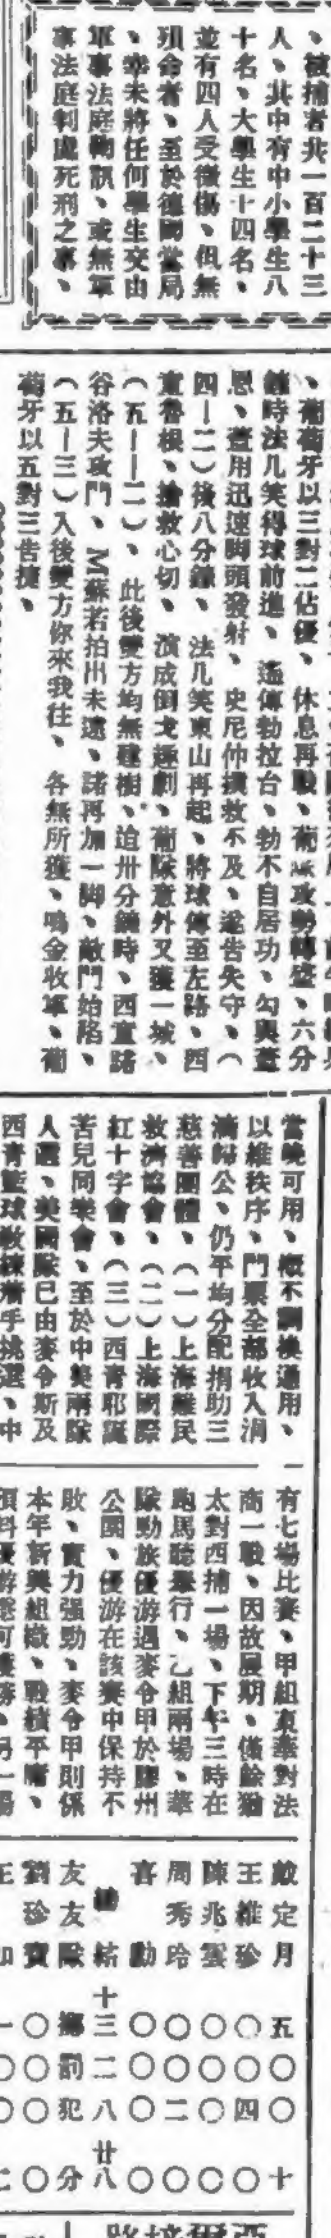 、被捕者共一百二十三
人、其中有中小學生八
十名、大學生十四名、
並有四人受微傷、但無
殞命者、至於德國當局
、幸未將任何學生交由
軍事法庭鞫訊、或無軍
事法庭判處死刑之事、
、葡萄牙以三對二佔優、休息再戰、葡隊攻勢轉盛、六分
鐘時法几笑得球前進、遙傳勃拉台、勃不自居功、勾與萱
恩、萱用迅速脚頭發射、史尼仲撲救不及、遂告失守、(
四—二)後八分鐘、法几笑東山再起、將球傳至左路、西
童魯根、搶救心切、演成倒戈趣劇、葡隊意外又獲一城、
(五——二)、此後雙方均無建樹、迨卅分鐘時、西童諾
谷洛夫攻門、M蘇若拍出未遠、諾再加一脚、敵門始陷、
(五—三)入後雙方你來我往、各無所獲、鳴金收軍、葡
萄牙以五對三告捷、
當晚可用、概不調換通用、
以維秩序、門票全部收入涓
滴歸公、仍平均分配捐助三
慈善團體、(一)上海難民
救濟協會、(二)上海國際
紅十字會、(三)西青耶誕
苦兒同樂會、至於中美兩隊
人選、美國隊已由麥令斯及
西青籃球教練着手挑選、中
有七場比賽、甲組東華對法
商一戰、因故展期、僅餘猶
太對西捕一場、下午三時在
跑馬聽舉行、乙組兩場、華
隊勁旅優游遇麥令甲於膠州
公園、優游在該賽中保持不
敗、實力强勁、麥令甲則係
本年新興組織、戰績平庸、
預料優游 可獲勝、另一場
戴定月 五〇〇十
王維珍 〇〇四〇
陳兆雲 〇〇〇〇
周秀玲 〇〇二〇
喜勳 〇〇〇〇
總結 十三二八廿八
友友隊 擲罰犯分
劉珍寶 〇〇〇〇